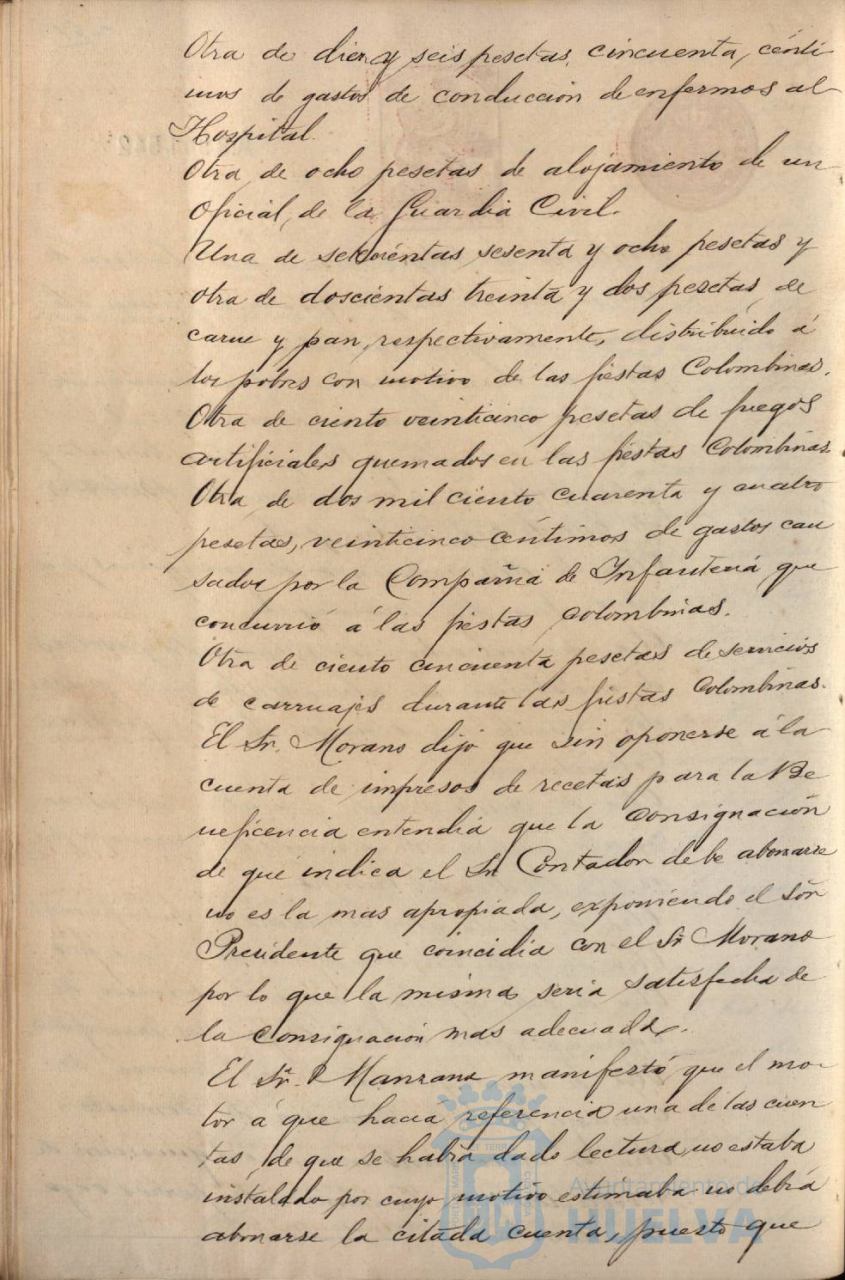 Otra de diez y seis pesetas, cincuenta, cénti
mos de gastos de conducción de enfermos al
Hospital.
Otra de ocho pesetas de alojamiento de un
Oficial, de la Guardia Civil.
Una de setecientas sesenta y ocho pesetas y
otra de doscientas treinta y dos pesetas, de
carne y pan, respectivamente, distribuido á
los pobres con motivo de las fiestas Colombinas.
Otra de ciento veinticinco pesetas de fuegos
artificiales quemados en las fiestas Colombinas.
Otra de dos mil ciento cuarenta y cuatro
pesetas, veinticinco céntimos de gastos cau
sados por la Compañia de Infanteria que
concurrió á las fiestas Colombinas.
Otra de ciento cincuenta pesetas de servicios
de carruajes durante las fiestas Colombinas.
El Sr. Morano dijo que sin oponerse á la
cuenta de impresos de recetas para la Be
neficencia entendia que la consignación
de que indica el Sr Contador debe abonarse
no es la mas apropiada, exponiendo el Sõr
Presidente que coincidia con el Sr Morano
por lo que la misma seria satisfecha de
la consignación mas adecuada.
El Sr. Manzano manifestó que el mo-
tor á que hacia referencia una de las cuen
tas de que se habia dado lectura, no estaba
instalado por cuyo motivo estimaba no debia
abonarse la citada cuenta, puesto que
Ayuntamiento de
HUELVA